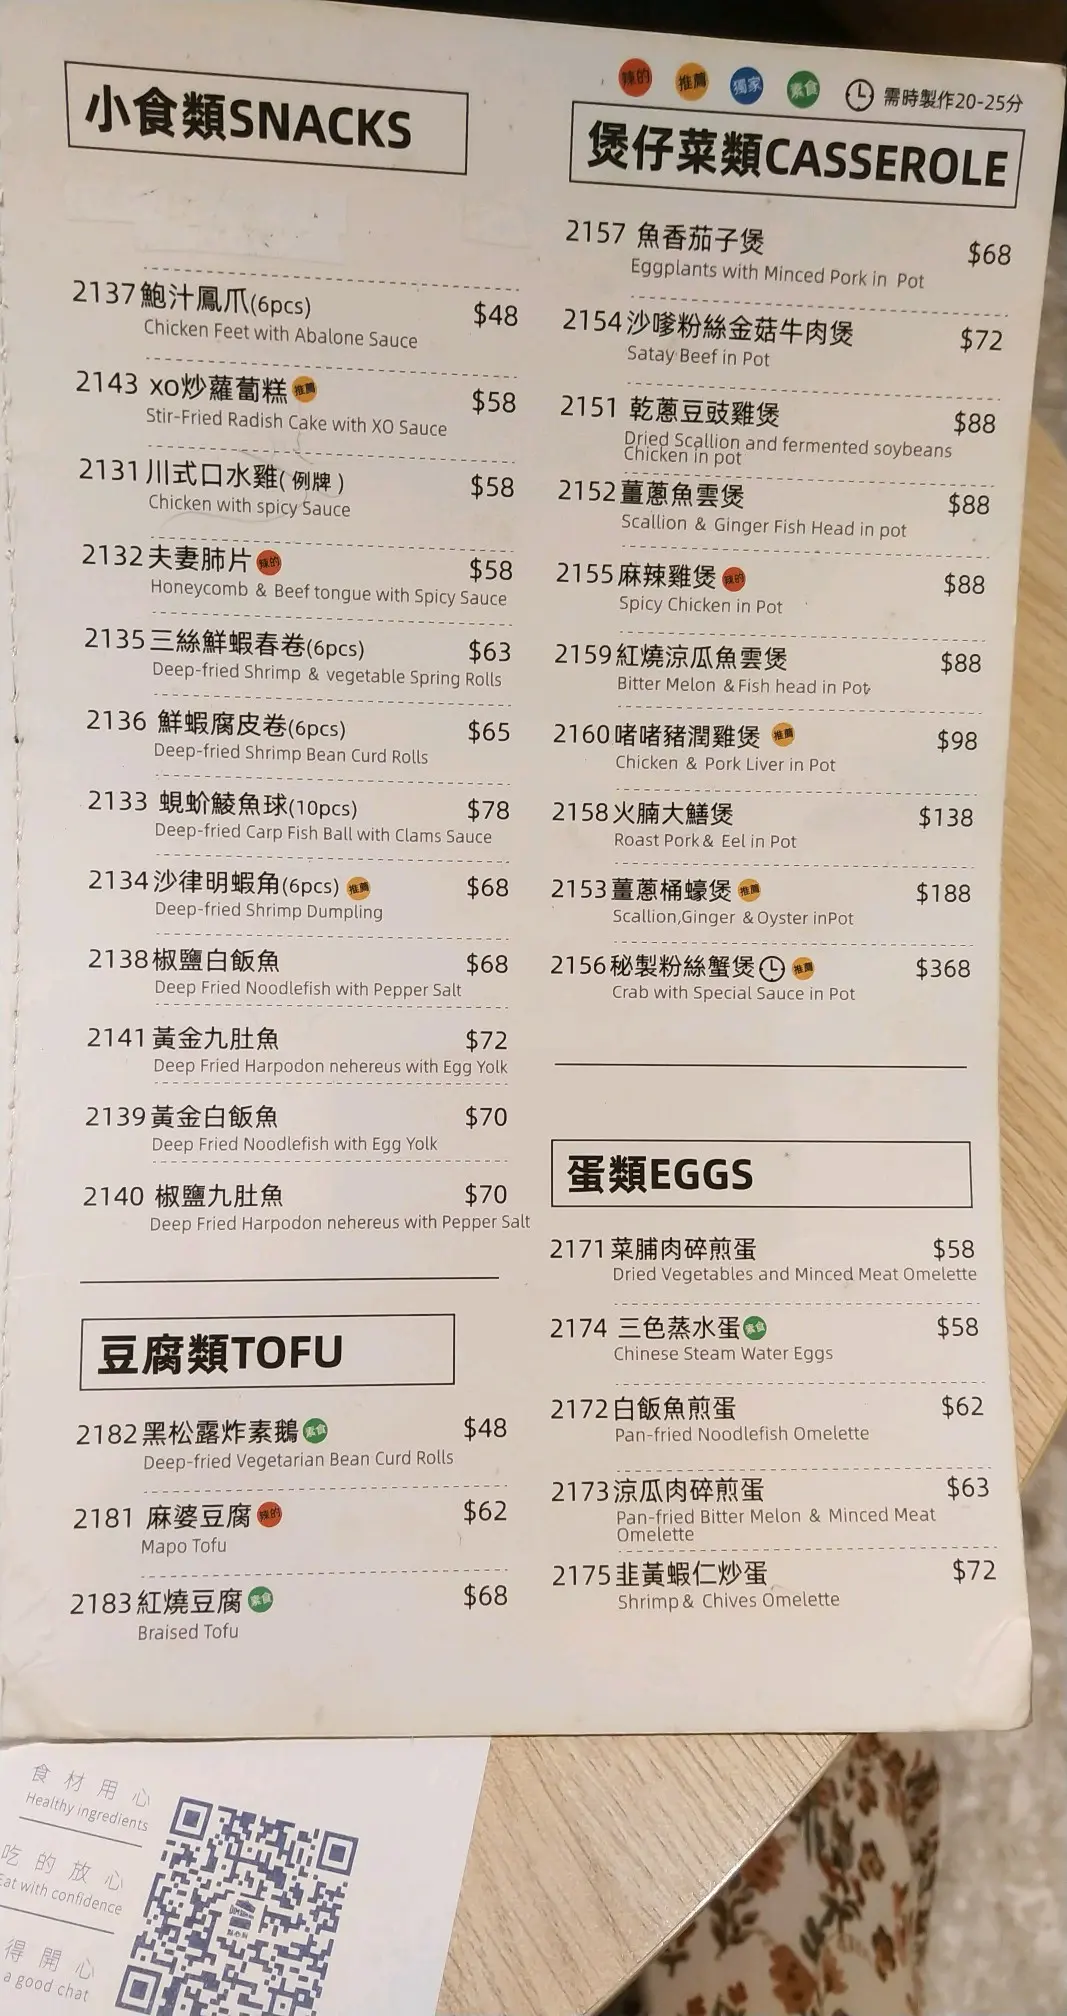 小食類SNACKS
2137 鮑汁鳳爪(6pcs) $48
Chicken Feet with Abalone Sauce
2143 xo炒蘿蔔糕 推薦 $58
Stir-Fried Radish Cake with XO Sauce
2131 川式口水雞(例牌) $58
Chicken with spicy Sauce
2132 夫妻肺片 辣的 $58
Honeycomb & Beef tongue with Spicy Sauce
2135 三絲鮮蝦春卷(6pcs) $63
Deep-fried Shrimp & vegetable Spring Rolls
2136 鮮蝦腐皮卷(6pcs) $65
Deep-fried Shrimp Bean Curd Rolls
2133 蜆蚧鯪魚球(10pcs) $78
Deep-fried Carp Fish Ball with Clams Sauce
2134 沙律明蝦角(6pcs) 推薦 $68
Deep-fried Shrimp Dumpling
2138 椒鹽白飯魚 $68
Deep Fried Noodlefish with Pepper Salt
2141 黃金九肚魚 $72
Deep Fried Harpodon nehereus with Egg Yolk
2139 黃金白飯魚 $70
Deep Fried Noodlefish with Egg Yolk
2140 椒鹽九肚魚 $70
Deep Fried Harpodon nehereus with Pepper Salt
豆腐類TOFU
2182 黑松露炸素鵝 素食 $48
Deep-fried Vegetarian Bean Curd Rolls
2181 麻婆豆腐 辣的 $62
Mapo Tofu
2183 紅燒豆腐 素食 $68
Braised Tofu
辣的 推薦 獨家 素食 需時製作20-25分
煲仔菜類CASSEROLE
2157 魚香茄子煲 $68
Eggplants with Minced Pork in Pot
2154 沙嗲粉絲金菇牛肉煲 $72
Satay Beef in Pot
2151 乾蔥豆豉雞煲 $88
Dried Scallion and fermented soybeans
Chicken in pot
2152 薑蔥魚雲煲 $88
Scallion & Ginger Fish Head in pot
2155 麻辣雞煲 辣的 $88
Spicy Chicken in Pot
2159 紅燒涼瓜魚雲煲 $88
Bitter Melon & Fish head in Pot
2160 啫啫豬潤雞煲 推薦 $98
Chicken & Pork Liver in Pot
2158 火腩大鱔煲 $138
Roast Pork & Eel in Pot
2153 薑蔥桶蠔煲 推薦 $188
Scallion,Ginger & Oyster inPot
2156 秘製粉絲蟹煲 推薦 $368
Crab with Special Sauce in Pot
蛋類EGGS
2171 菜脯肉碎煎蛋 $58
Dried Vegetables and Minced Meat Omelette
2174 三色蒸水蛋 素食 $58
Chinese Steam Water Eggs
2172 白飯魚煎蛋 $62
Pan-fried Noodlefish Omelette
2173 涼瓜肉碎煎蛋 $63
Pan-fried Bitter Melon & Minced Meat
Omelette
2175 韭黃蝦仁炒蛋 $72
Shrimp & Chives Omelette
食材用心
Healthy ingredients
吃的放心
Eat with confidence
得開心
a good chat